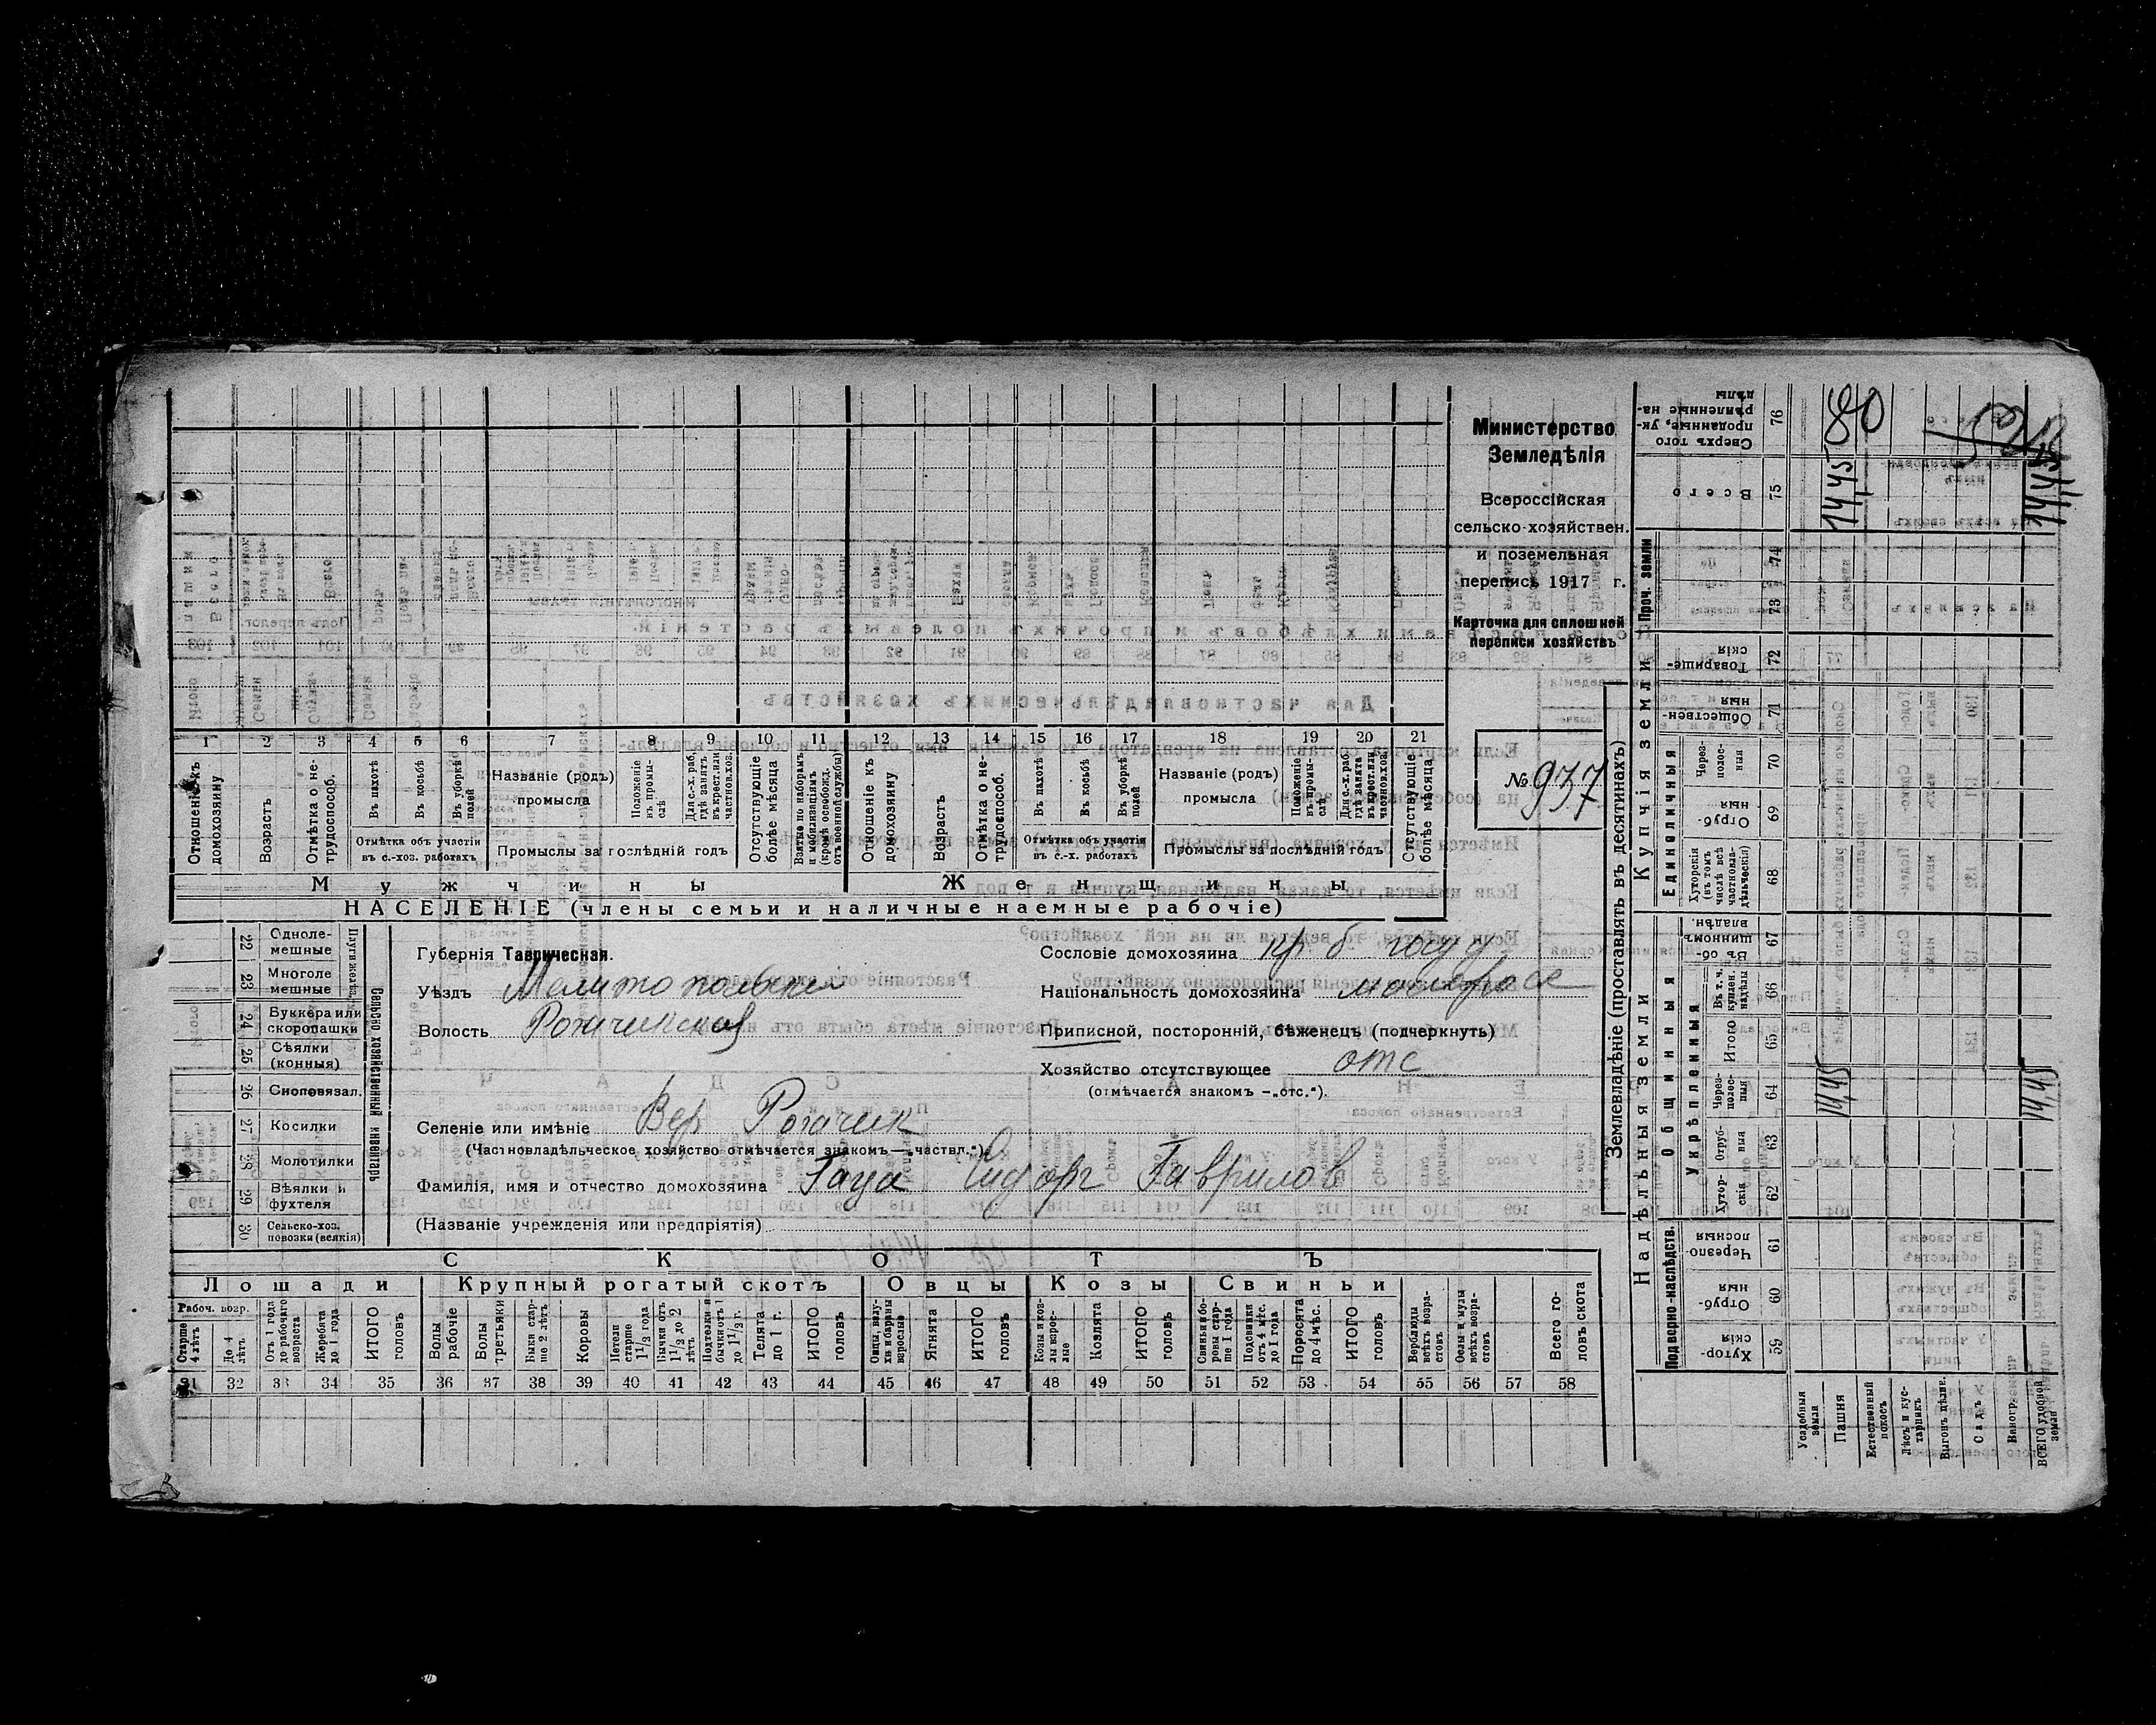 Министерство
Земледѣлія
Всероссійская
сельско-хозяйствен.
и поземельная
перепись 1917 г.
Карточка для сплошной
переписи хозяйствъ
№ 937
1 2 3 4 5 6 7 8 9 10 11 12 13 14 15 16 17 18 19 20 21
Отношеніе къ домохозяину
Возрастъ
Отмѣтка о не-трудоспособ.
Въ пахотѣ
Въ косьбѣ
Въ уборкѣ полей
Отмѣтка объ участіи въ с.-хоз. работахъ
Названіе (родъ) промысла
Положеніе въ промы-слѣ
Для с.-х. раб. гдѣ занятъ въ крест. или частновл. хоз.
Промыслы за послѣдній годъ
Отсутствующіе болѣе мѣсяца
Взятые по наборамъ и мобилизаціямъ (кромѣ освобожд. отъ военной службы)
Отношеніе къ домохозяину
Возрастъ
Отмѣтка о не-трудоспособ.
Въ пахотѣ
Въ косьбѣ
Въ уборкѣ полей
Отмѣтка объ участіи въ с.-х. работахъ
Названіе (родъ) промысла
Положеніе въ промы-слѣ
Для с.-х. раб. гдѣ занята въ крест. или частнов. хоз.
Промыслы за послѣдній годъ
Отсутствующіе болѣе мѣсяца
Мужчины Женщины
НАСЕЛЕНІЕ (члены семьи и наличные наемные рабочіе)
Сельско хозяйственный инвентарь
22 Однолемешные
23 Многоле мешные
24 Буккера или скоропашки
25 Сѣялки (конныя)
26 Сноповязал.
27 Косилки
28 Молотилки
29 Вѣялки и фухтеля
30 Сельско-хоз. повозки (всякія)
Губернія Таврическая.
Уѣздъ Мелитопольскій
Волость Рогачикская
Сословіе домохозяина кр. б
Національность домохозяина малоросс
Приписной, посторонній, бѣженецъ (подчеркнуть)
Хозяйство отсутствующее отс
(отмѣчается знакомъ —„отс.“).
Селеніе или имѣніе Вер Рогачик
(Частновладѣльческое хозяйство отмѣчается знакомъ—„частвл.“)
Фамилія, имя и отчество домохозяина Гаца Сидор Гаврилов
(Названіе учрежденія или предпріятія)
СКОТЪ
Лошади Крупный рогатый скотъ Овцы Козы Свиньи
Рабоч. возр.
Старше 4 лѣтъ
До 4 лѣтъ
Отъ 1 года до рабочаго возраста
Жеребята до 1 года
ИТОГО головъ
Волы рабочіе
Волы третьяки
Быки старше 2 лѣтъ
Коровы
Нетели старше 1½ года
Бычки отъ 1½ до 2 лѣтъ
Подтелки и бычки отъ 1 до 1½ г.
Телята до 1 г.
ИТОГО головъ
Овцы, валухи и бараны взрослые
Ягнята
ИТОГО головъ
Козы и козлы взрослые
Козлята
ИТОГО головъ
Свиньи и боровы старше 1 года
Подсвинки отъ 4 мѣс. до 1 года
Поросята до 4 мѣс.
ИТОГО головъ
Верблюды всѣхъ возрастовъ
Ослы и мулы всѣхъ возрастовъ
Всего головъ скота
31 32 33 34 35 36 37 38 39 40 41 42 43 44 45 46 47 48 49 50 51 52 53 54 55 56 57 58
Землевладѣніе (проставлять въ десятинахъ)
Надѣльныя земли Купчія земли Проч. земли
Подворно-наслѣдств.
Общинныя
Укрѣпленныя
Единоличныя
59 Хуторскія
60 Отрубныя
61 Черезполосныя
62 Хуторскія
63 Отрубныя
64 Черезполосныя
65 Итого
66 Въ т. ч. куплен. надѣлы
67 Въ общинномъ владѣн.
68 Хуторскія (въ томъ числѣ всѣ частновладѣльческія)
69 Отрубныя
70 Черезполосныя
71 Общественныя
72 Товарищескія
73
74
75 Всего
76 Сверхъ того проданные, укрѣпленные надѣлы
Усадебныя земля
Пашня
Естественный покосъ
Лѣсъ и кустарникъ
Выгонъ цѣлине.
Садъ
Виноградникъ
ВСЕГО удобной земли
14,45
14,45
14,45
14,45
80